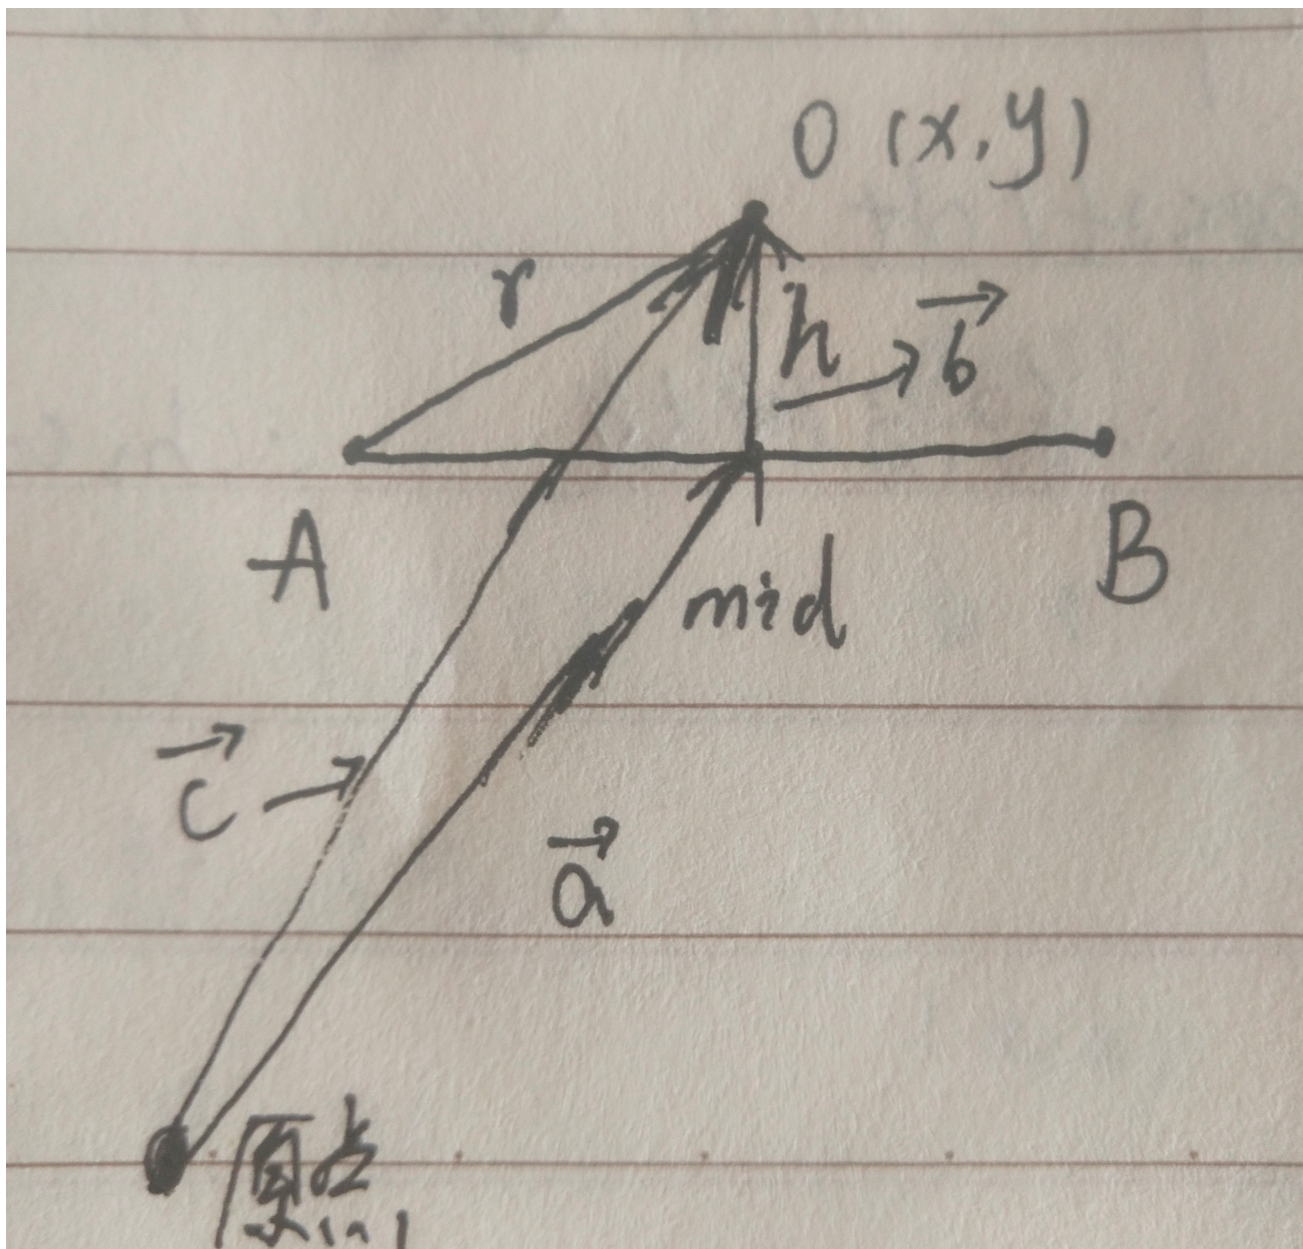 O (x,y)
r
h
→b
A
B
mid
→c
→a
原点